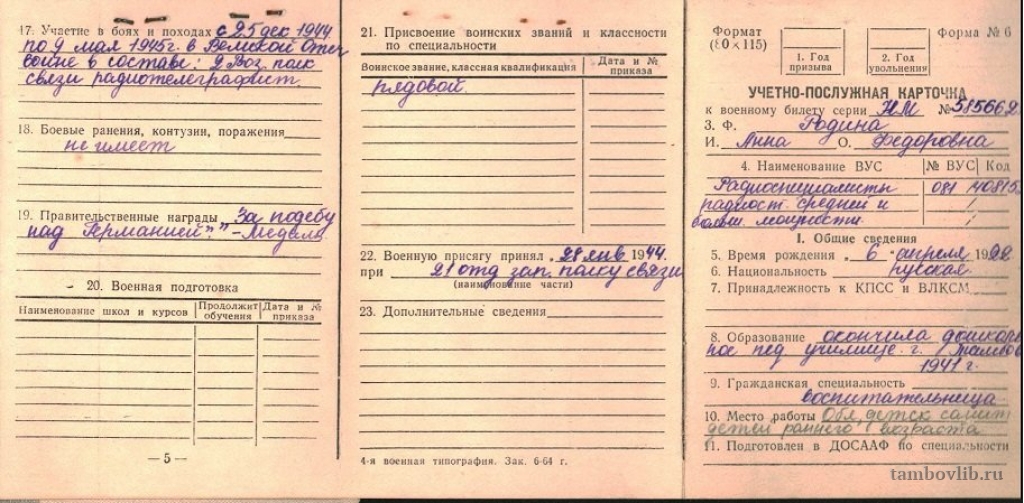 17. Участие в боях и походах с 25 дек 1944
по 9 мая 1945 г. в Великой Отеч
войне в составе: 9 Воз. полк
связи радиотелеграфист.
18. Боевые ранения, контузии, поражения
не имеет
19. Правительственные награды „За победу
над Германией" - Медаль
20. Военная подготовка
Наименование школ и курсов
Продолжит обучения
Дата и № приказа
—5—
21. Присвоение воинских званий и классности
по специальности
Воинское звание, классная квалификация
Дата и № приказа
рядовой.
22. Военную присягу принял „28 янв 1944
при 21 отд зап. полку связи
(наименование части)
23. Дополнительные сведения
4-я военная типография. Зак. 6-64 г.
Формат
(80×115)
1. Год
призыва
2. Год
увольнения
Форма № 6
УЧЕТНО-ПОСЛУЖНАЯ КАРТОЧКА
к военному билету серии НМ № 585662
3. Ф. Родина
И. Анна О. Федоровна
4. Наименование ВУС № ВУС Код
Радиоспециалисты 081
радиост. средней и
больш. мощности
I. Общие сведения
5. Время рождения „6" апреля
6. Национальность русская
7. Принадлежность к КПСС и ВЛКСМ
8. Образование окончила дошколь
ное пед училище г. Тамбов
1941 г.
9. Гражданская специальность
воспитательница
10. Место работы Обл. детск санит
детей раннего возраста
11. Подготовлен в ДОСААФ по специальности
tambovlib.ru